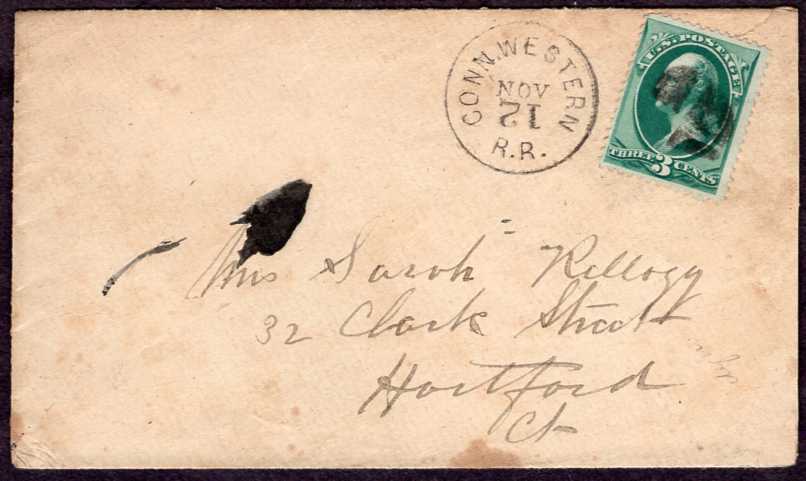 CONN. WESTERN
NOV
21
R.R.
U.S. POSTAGE
THREE 3 CENTS
Mrs Sarah Kellogg
32 Clark Street
Hartford
Ct